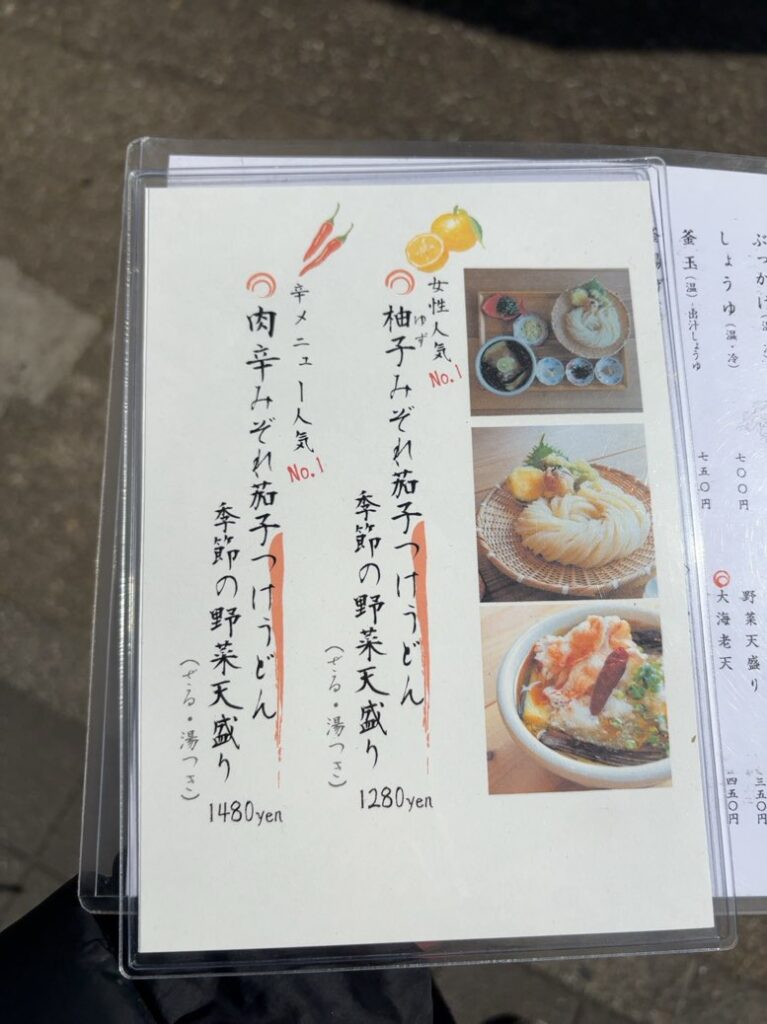 ぶっかけ
しょうゆ（温・冷）
七〇〇円
釜玉（温）-出汁しょうゆ
七五〇円
野菜天盛り
三五〇円
大海老天
四五〇円
女性人気
No.1
柚子みぞれ茄子つけうどん
ゆず
季節の野菜天盛り
（ざる・湯つき）
1280yen
辛メニュー人気
No.1
肉辛みぞれ茄子つけうどん
季節の野菜天盛り
（ざる・湯つき）
1480yen